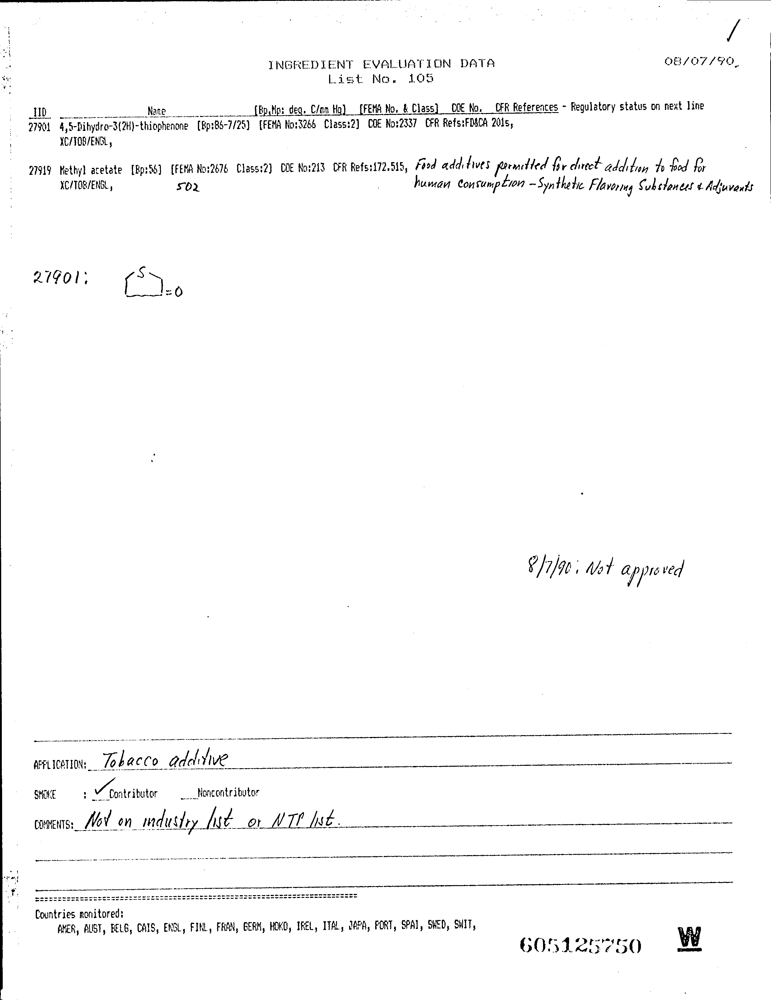 /
INGREDIENT EVALUATION DATA 08/07/90
List No. 105
IID Name [Bp,Mp: deg. C/mm Hg] [FEMA No. & Class] COE No. CFR References - Regulatory status on next line
27901 4,5-Dihydro-3(2H)-thiophenone [Bp:86-7/25] [FEMA No:3266 Class:2] COE No:2337 CFR Refs:FD&CA 201s,
XC/TOB/ENGL,
27919 Methyl acetate [Bp:56] [FEMA No:2676 Class:2] COE No:213 CFR Refs:172.515, Food additives permitted for direct addition to food for
XC/TOB/ENGL, 502 human consumption - Synthetic Flavoring Substances & Adjuvants
27901: S =O
8/7/90: Not approved
APPLICATION: Tobacco additive
SMOKE : ✓ Contributor ___Noncontributor
COMMENTS: Not on industry list or NTP list.
Countries monitored:
AMER, AUST, BELG, CAIS, ENGL, FINL, FRAN, GERM, HOKO, IREL, ITAL, JAPA, PORT, SPAI, SWED, SWIT,
605125750 W